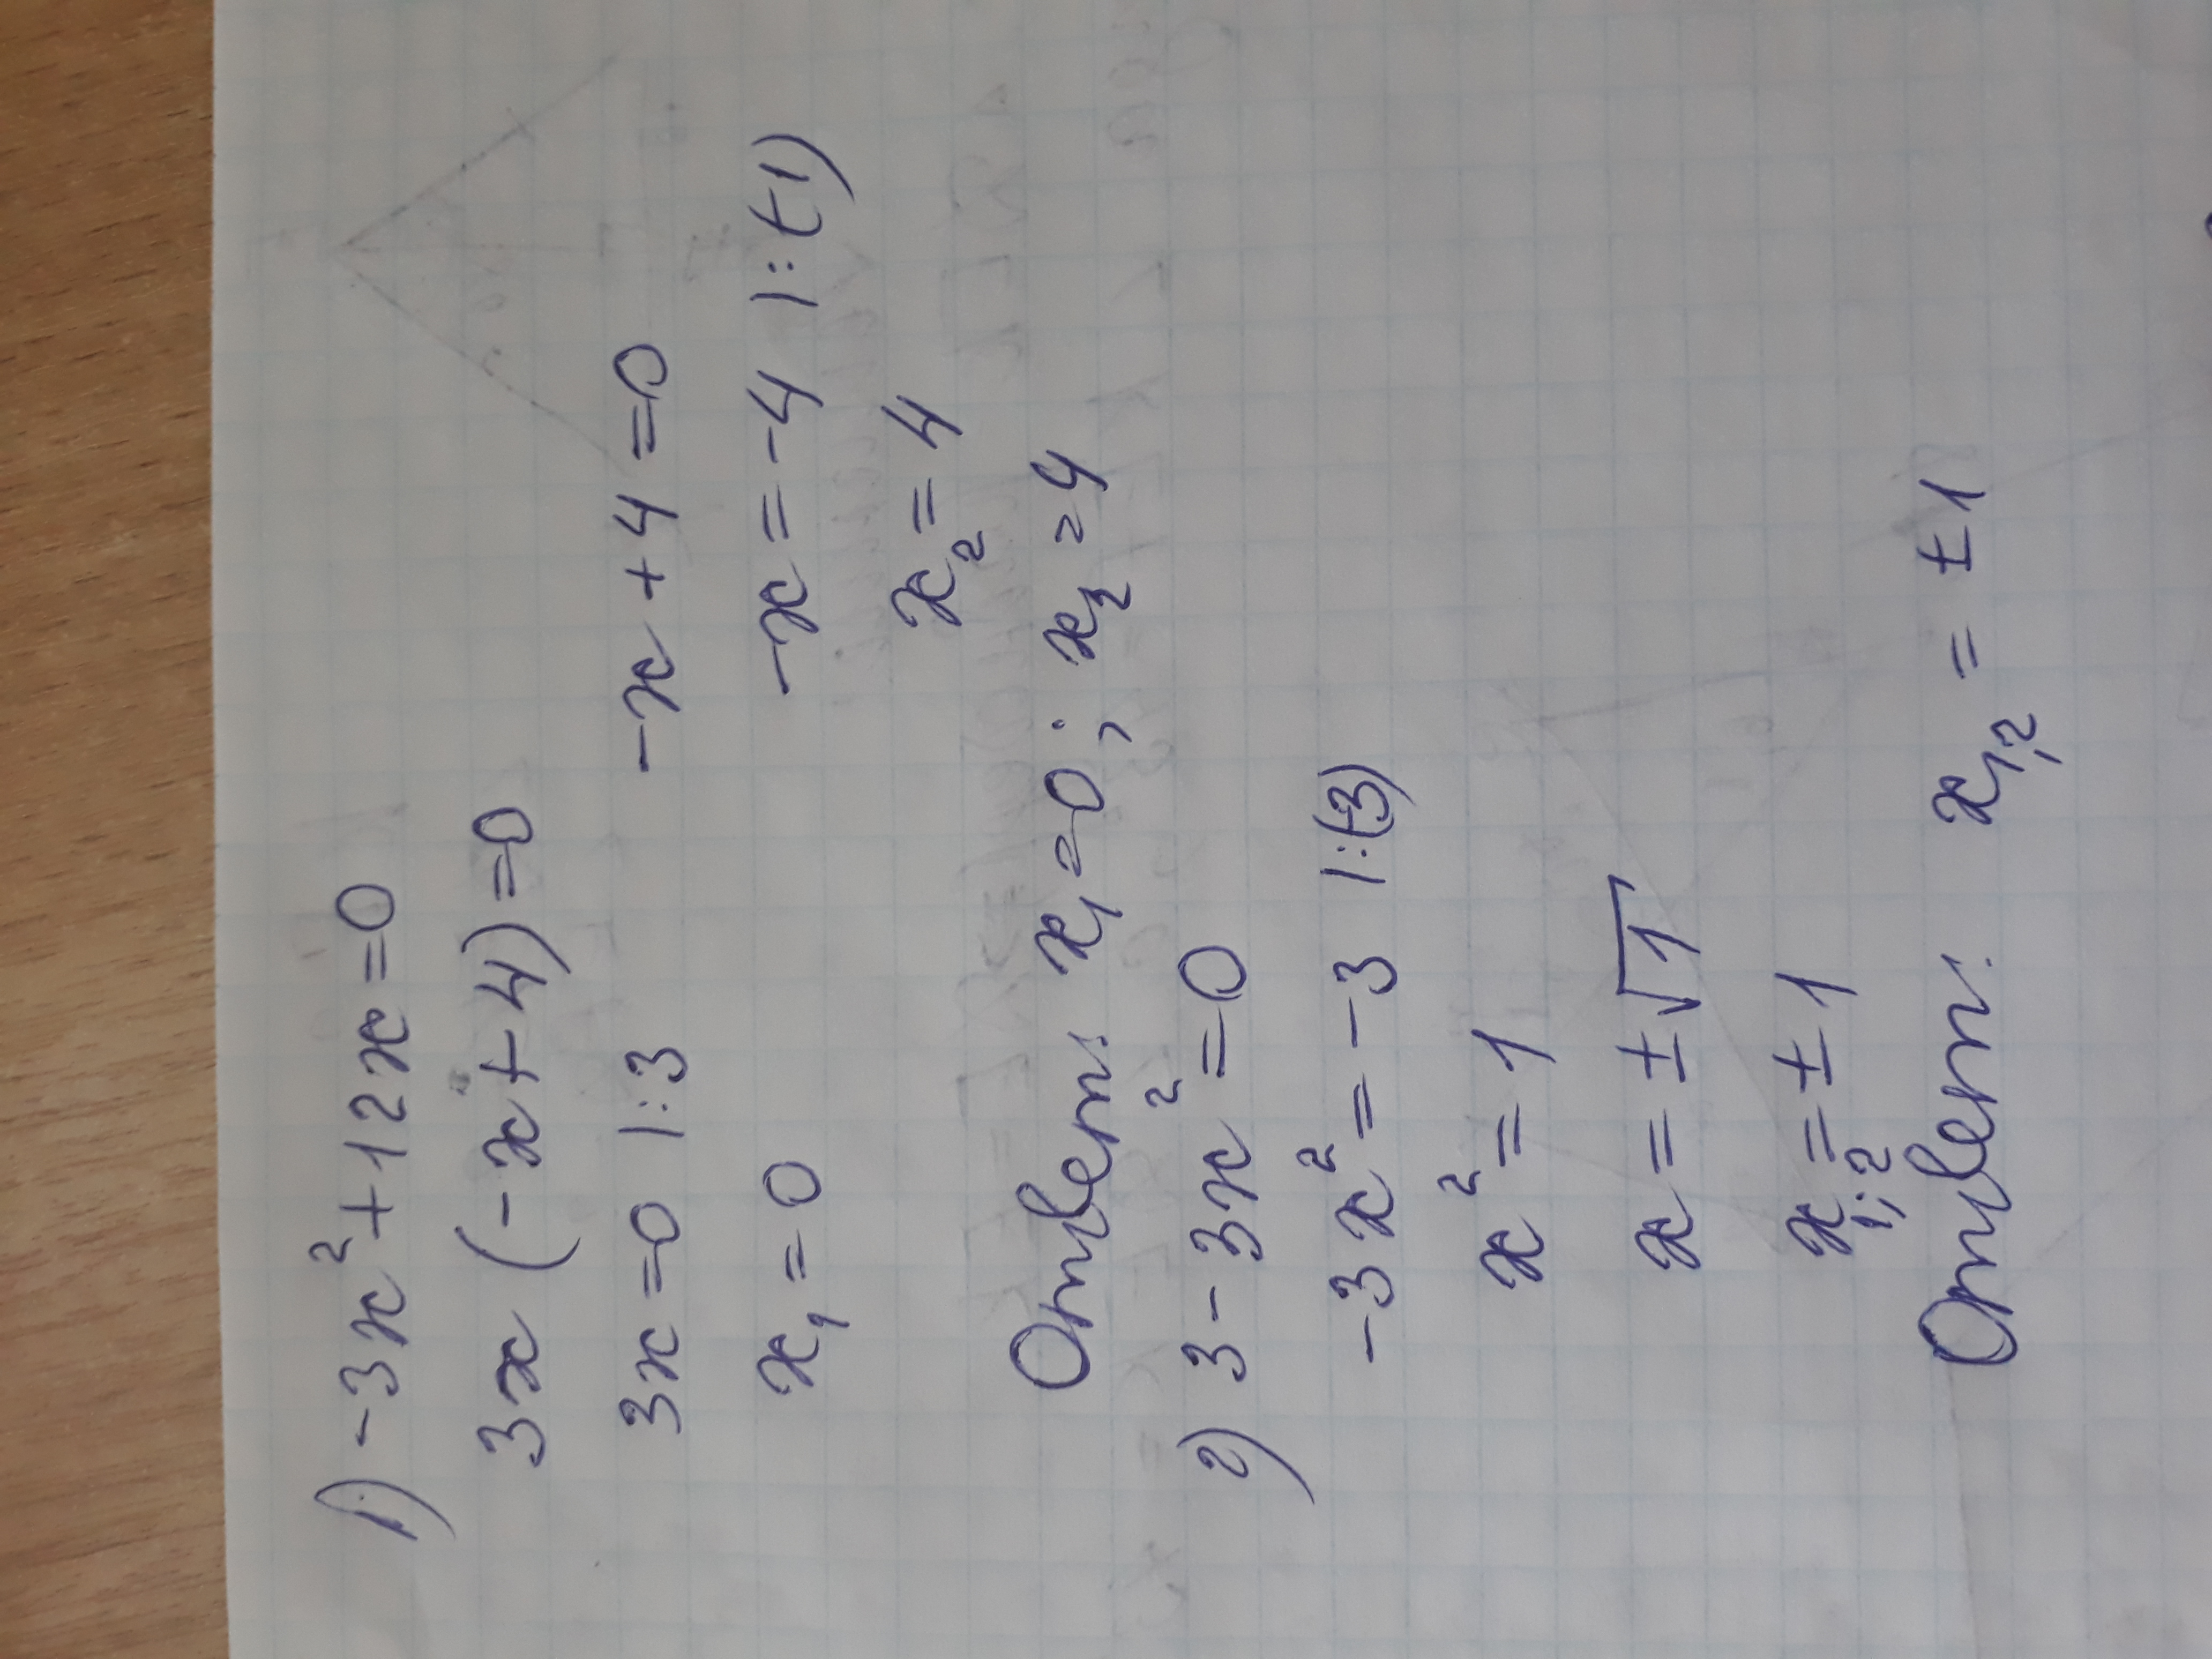 1) -3x²+12x=0
3x(-x+4)=0
3x=0 |:3 -x+4=0
x₁=0 -x=-4 |:(-1)
x₂=4
Ответ: x₁=0; x₂=4
2) 3-3x²=0
-3x²=-3 |:(-3)
x²=1
x=±√1
x₁;₂=±1
Ответ: x₁,₂=±1